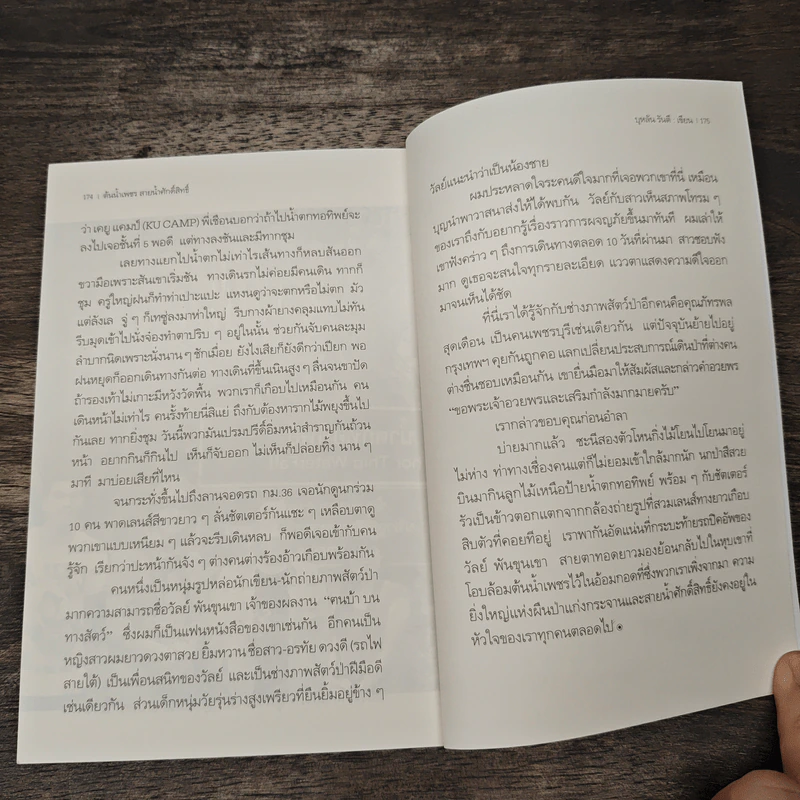 174 | ต้นน้ำเพชร สายน้ำศักดิ์สิทธิ์
ว่า เคยู แคมป์ (KU CAMP) พี่เชือนบอกว่าถ้าไปน้ำตกทอทิพย์จะ
ลงไปเจอชั้นที่ 5 พอดี แต่ทางลงชันและมีทากชุม
เลยทางแยกไปน้ำตกไม่เท่าไรเส้นทางก็หลบสันออก
ขวามือเพราะสันเขาเริ่มชัน ทางเดินรกไม่ค่อยมีคนเดิน ทากก็
ชุม ครู่ใหญ่ฝนก็ทำท่าเปาะแปะ แหงนดูว่าจะตกหรือไม่ตก มัว
แต่ลังเล จู่ ๆ ก็เทซู่ลงมาห่าใหญ่ รีบกางผ้ายางคลุมแทบไม่ทัน
รีบมุดเข้าไปนั่งจ๋องทำตาปริบ ๆ อยู่ในนั้น ช่วยกันจับคนละมุม
ลำบากนิดเพราะนั่งนาน ๆ ชักเมื่อย ยังไงเสียก็ยังดีกว่าเปียก พอ
ฝนหยุดก็ออกเดินทางกันต่อ ทางเดินที่ขึ้นเนินสูง ๆ ลื่นจนขาปัด
ถ้ารองเท้าไม่เกาะมีหวังวัดพื้น พวกเราก็เกือบไปเหมือนกัน คน
เดินหน้าไม่เท่าไร คนรั้งท้ายนี่สิแย่ ถึงกับต้องหารากไม้พยุงขึ้นไป
กันเลย ทากยิ่งชุม วันนี้พวกมันเปรมปรีดิ์อิ่มหนำสำราญกันถ้วน
หน้า อยากกินก็กินไป เห็นก็จับออก ไม่เห็นก็ปล่อยทิ้ง นาน ๆ
มาที มาบ่อยเสียที่ไหน
จนกระทั่งขึ้นไปถึงลานจอดรถ กม.36 เจอนักดูนกร่วม
10 คน พาดเลนส์สีขาวยาว ๆ ลั่นชัตเตอร์กันแชะ ๆ เหลือบตาดู
พวกเขาแบบเหนียม ๆ แล้วจะรีบเดินหลบ ก็พอดีเจอเข้ากับคน
รู้จัก เรียกว่าปะหน้ากันจัง ๆ ต่างคนต่างร้องอ้าวเกือบพร้อมกัน
คนหนึ่งเป็นหนุ่มรูปหล่อนักเขียน-นักถ่ายภาพสัตว์ป่า
มากความสามารถชื่อวัลย์ พันขุนเขา เจ้าของผลงาน “ฅนบ้า บน
ทางสัตว์” ซึ่งผมก็เป็นแฟนหนังสือของเขาเช่นกัน อีกคนเป็น
หญิงสาวผมยาวดวงตาสวย ยิ้มหวาน ชื่อสาว-อรทัย ดวงดี (รถไฟ
สายใต้) เป็นเพื่อนสนิทของวัลย์ และเป็นช่างภาพสัตว์ป่าฝีมือดี
เช่นเดียวกัน ส่วนเด็กหนุ่มวัยรุ่นร่างสูงเพรียวที่ยืนยิ้มอยู่ข้าง ๆ
บุหลัน รันตี : เขียน | 175
วัลย์แนะนำว่าเป็นน้องชาย
ผมประหลาดใจระคนดีใจมากที่เจอพวกเขาที่นี่ เหมือน
บุญนำพาวาสนาส่งให้ได้พบกัน วัลย์กับสาวเห็นสภาพโทรม ๆ
ของเราถึงกับอยากรู้เรื่องราวการผจญภัยขึ้นมาทันที ผมเล่าให้
เขาฟังคร่าว ๆ ถึงการเดินทางตลอด 10 วันที่ผ่านมา สาวชอบฟัง
มาก ดูเธอจะสนใจทุกรายละเอียด แววตาแสดงความดีใจออก
มาจนเห็นได้ชัด
ที่นี่เราได้รู้จักกับช่างภาพสัตว์ป่าอีกคนคือคุณภัทรพล
สุดเดือน เป็นคนเพชรบุรีเช่นเดียวกัน แต่ปัจจุบันย้ายไปอยู่
กรุงเทพฯ คุยกันถูกคอ แลกเปลี่ยนประสบการณ์เดินป่าที่ต่างคน
ต่างชื่นชอบเหมือนกัน เขายื่นมือมาให้สัมผัสและกล่าวคำอวยพร
“ขอพระเจ้าอวยพรและเสริมกำลังมากมายครับ”
เรากล่าวขอบคุณก่อนอำลา
บ่ายมากแล้ว ชะนีสองตัวโหนกิ่งไม้โยนไปโยนมาอยู่
ไม่ห่าง ท่าทางเชื่องคนแต่ก็ไม่ยอมเข้าใกล้มากนัก นกป่าสีสวย
บินมากินลูกไม้เหนือป้ายน้ำตกทอทิพย์ พร้อม ๆ กับชัตเตอร์
รัวเป็นข้าวตอกแตกจากกล้องถ่ายรูปที่สวมเลนส์ทางยาวเกือบ
สิบตัวที่คอยทีอยู่ เราพากันอัดแน่นที่กระบะท้ายรถปิคอัพของ
วัลย์ พันขุนเขา สายตาทอดยาวมองย้อนกลับไปในหุบเขาที่
โอบล้อมต้นน้ำเพชรไว้ในอ้อมกอดที่ซึ่งพวกเราเพิ่งจากมา ความ
ยิ่งใหญ่แห่งผืนป่าแก่งกระจานและสายน้ำศักดิ์สิทธิ์ยังคงอยู่ใน
หัวใจของเราทุกคนตลอดไป